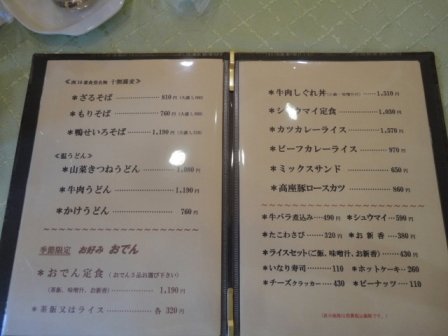 ＊ざるそば …… 810円
＊もりそば …… 760円
＊鴨せいろそば …… 1,190円
≪温うどん≫
＊山菜きつねうどん …… 円
＊牛肉うどん …… 1,190円
＊かけうどん …… 760円
季節限定 お好み おでん
＊おでん定食 (おでん5品お選び下さい)
(茶飯、味噌汁、お新香) …… 1,190円
＊茶飯又はライス …… 各 320円
＊牛肉しぐれ丼 …… 1,510円
＊シュウマイ定食 …… 1,030円
＊カツカレーライス …… 1,570円
＊ビーフカレーライス …… 970円
＊ミックスサンド …… 650円
＊高座豚ロースカツ …… 860円
＊牛バラ煮込み …… 490円 ＊シュウマイ …… 590円
＊たこわさび …… 320円 ＊お新香 …… 380円
＊ライスセット(ご飯、味噌汁、お新香) …… 430円
＊いなり寿司 …… 110円 ＊ホットケーキ …… 260円
＊チーズクラッカー …… 430円 ＊ピーナッツ …… 110円